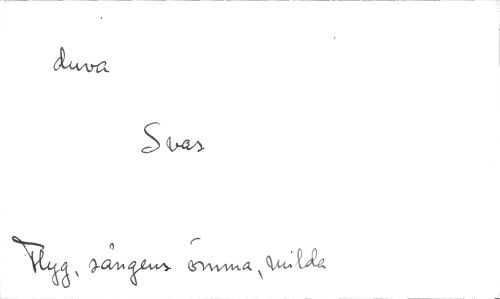 duva
Svas
Flyg, sångens ömma, milda